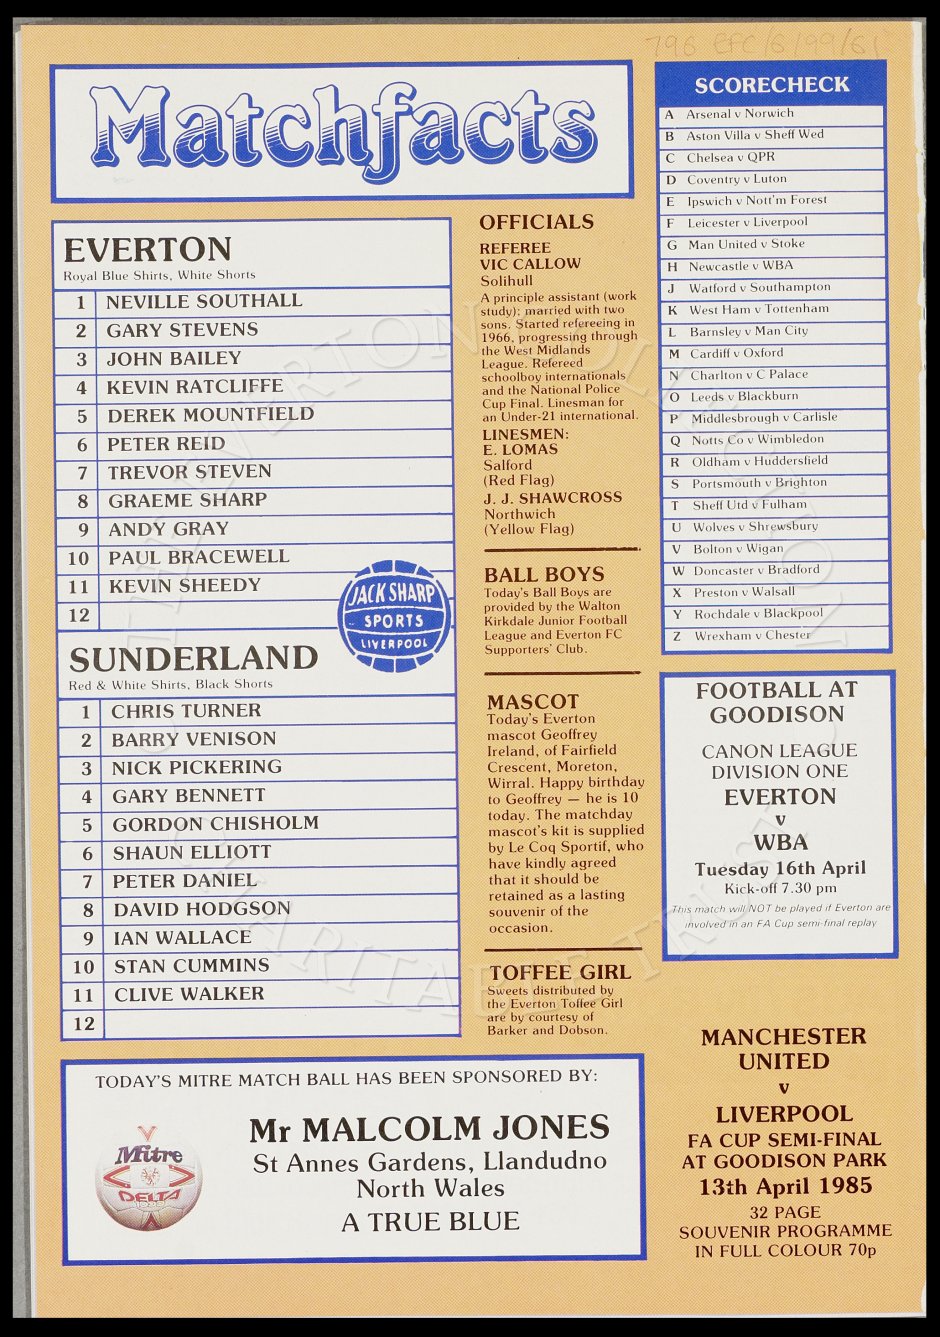 796 EFC/6/99/61
Matchfacts
EVERTON
Royal Blue Shirts, White Shorts
1 NEVILLE SOUTHALL
2 GARY STEVENS
3 JOHN BAILEY
4 KEVIN RATCLIFFE
5 DEREK MOUNTFIELD
6 PETER REID
7 TREVOR STEVEN
8 GRAEME SHARP
9 ANDY GRAY
10 PAUL BRACEWELL
11 KEVIN SHEEDY
12
JACK SHARP
SPORTS
LIVERPOOL
SUNDERLAND
Red & White Shirts, Black Shorts
1 CHRIS TURNER
2 BARRY VENISON
3 NICK PICKERING
4 GARY BENNETT
5 GORDON CHISHOLM
6 SHAUN ELLIOTT
7 PETER DANIEL
8 DAVID HODGSON
9 IAN WALLACE
10 STAN CUMMINS
11 CLIVE WALKER
12
OFFICIALS
REFEREE
VIC CALLOW
Solihull
A principle assistant (work
study); married with two
sons. Started refereeing in
1966, progressing through
the West Midlands
League. Refereed
schoolboy internationals
and the National Police
Cup Final. Linesman for
an Under-21 international.
LINESMEN:
E. LOMAS
Salford
(Red Flag)
J. J. SHAWCROSS
Northwich
(Yellow Flag)
BALL BOYS
Today's Ball Boys are
provided by the Walton
Kirkdale Junior Football
League and Everton FC
Supporters' Club.
MASCOT
Today's Everton
mascot Geoffrey
Ireland, of Fairfield
Crescent, Moreton,
Wirral. Happy birthday
to Geoffrey — he is 10
today. The matchday
mascot's kit is supplied
by Le Coq Sportif, who
have kindly agreed
that it should be
retained as a lasting
souvenir of the
occasion.
TOFFEE GIRL
Sweets distributed by
the Everton Toffee Girl
are by courtesy of
Barker and Dobson.
SCORECHECK
A Arsenal v Norwich
B Aston Villa v Sheff Wed
C Chelsea v QPR
D Coventry v Luton
E Ipswich v Nott'm Forest
F Leicester v Liverpool
G Man United v Stoke
H Newcastle v WBA
J Watford v Southampton
K West Ham v Tottenham
L Barnsley v Man City
M Cardiff v Oxford
N Charlton v C Palace
O Leeds v Blackburn
P Middlesbrough v Carlisle
Q Notts Co v Wimbledon
R Oldham v Huddersfield
S Portsmouth v Brighton
T Sheff Utd v Fulham
U Wolves v Shrewsbury
V Bolton v Wigan
W Doncaster v Bradford
X Preston v Walsall
Y Rochdale v Blackpool
Z Wrexham v Chester
FOOTBALL AT
GOODISON
CANON LEAGUE
DIVISION ONE
EVERTON
v
WBA
Tuesday 16th April
Kick-off 7.30 pm
This match will NOT be played if Everton are
involved in an FA Cup semi-final replay
MANCHESTER
UNITED
v
LIVERPOOL
FA CUP SEMI-FINAL
AT GOODISON PARK
13th April 1985
32 PAGE
SOUVENIR PROGRAMME
IN FULL COLOUR 70p
TODAY'S MITRE MATCH BALL HAS BEEN SPONSORED BY:
Mitre
DELTA
Mr MALCOLM JONES
St Annes Gardens, Llandudno
North Wales
A TRUE BLUE
THE EVERTON COLLECTION
CHARITABLE TRUST